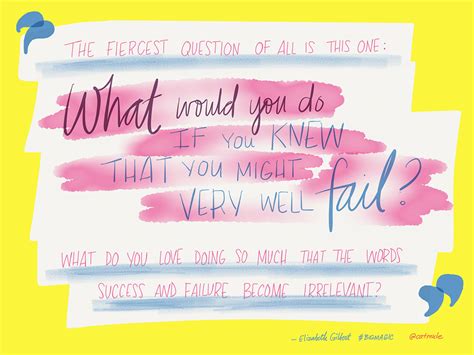 THE FIERCEST QUESTION OF ALL IS THIS ONE:
What would you do
IF YOU KNEW
THAT YOU MIGHT
VERY WELL fail?
WHAT DO YOU LOVE DOING SO MUCH THAT THE WORDS
SUCCESS AND FAILURE BECOME IRRELEVANT?
— Elizabeth Gilbert #BIGMAGIC